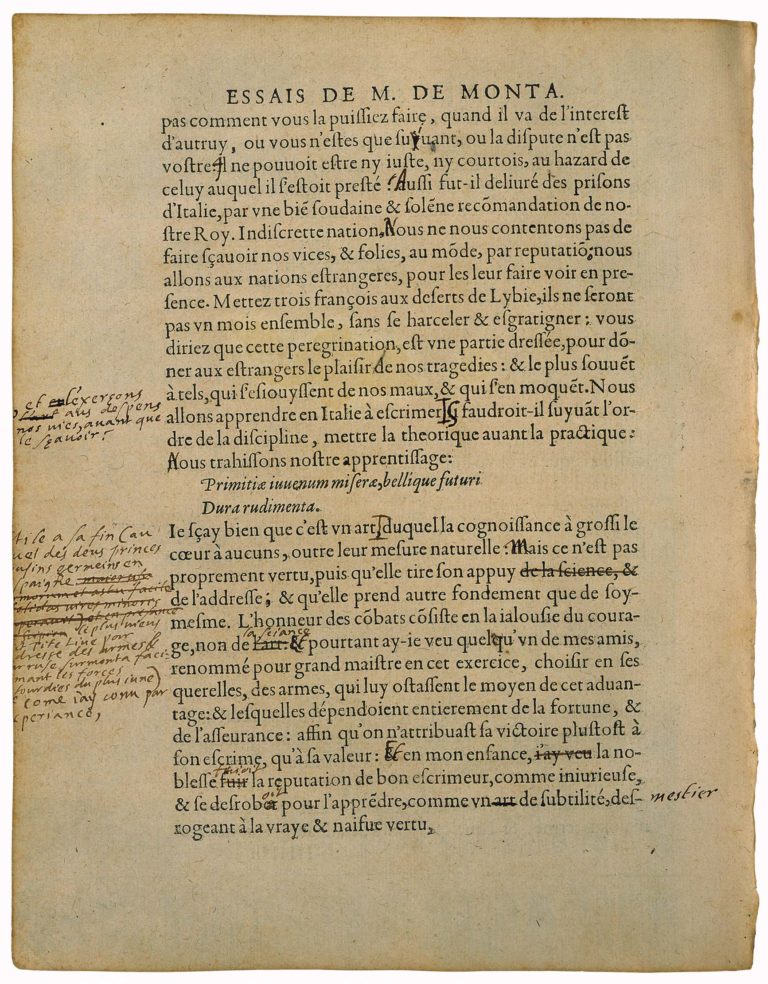 ESSAIS DE M. DE MONTA.
pas comment vous la puissiez faire, quand il va de l'interest
d'autruy, ou vous n'estes que suyuant, ou la dispute n'est pas
vostre. Il ne pouuoit estre ny iuste, ny courtois, au hazard de
celuy auquel il s'estoit presté: Aussi fut-il deliuré des prisons
d'Italie, par vne biē soudaine & solēne recōmandation de no-
stre Roy. Indiscrette nation, Nous ne nous contentons pas de
faire sçauoir nos vices, & folies, au mōde, par reputatiō; nous
allons aux nations estrangeres, pour les leur faire voir en pre-
sence. Mettez trois françois aux deserts de Lybie, ils ne seront
pas vn mois ensemble, sans se harceler & esgratigner: vous
diriez que cette peregrination, est vne partie dressée, pour dō-
ner aux estrangers le plaisir de nos tragedies: & le plus souuēt
à tels, qui s'esiouyssent de nos maux, & qui s'en moquēt. Nous
allons apprendre en Italie à escrimer, Ic faudroit-il suyuāt l'or-
dre de la discipline, mettre la theorique auant la practique:
Nous trahissons nostre apprentissage:
Primitiæ iuuenum miseræ, bellique futuri
Dura rudimenta.
Ie sçay bien que c'est vn art duquel la cognoissance à grossi le
cœur à aucuns, outre leur mesure naturelle: Mais ce n'est pas
proprement vertu, puis qu'elle tire son appuy de la science, &
de l'addresse; & qu'elle prend autre fondement que de soy-
mesme. L'honneur des cōbats cōsiste en la ialousie du coura-
la sciance
ge, non de l'art: & pourtant ay-ie veu quelqu'vn de mes amis,
renommé pour grand maistre en cet exercice, choisir en ses
querelles, des armes, qui luy ostassent le moyen de cet aduan-
tage: & lesquelles dépendoient entierement de la fortune, &
de l'asseurance: affin qu'on n'attribuast sa victoire plustost à
son escrime, qu'à sa valeur: Et en mon enfance, i'ay veu la no-
blesse fuir la reputation de bon escrimeur, comme iniurieuse,
& se desrober pour l'apprēdre, comme vn art de subtilité, des-
rogeant à la vraye & naifue vertu,
et l'exerçons
aus despens
nos vies, avant que
le sçavoir:
tile a sa fin Cau
uel des deus princes
usins germeins en
paigne
le plus vieus
dresse des armes &
ruse surmonta faci
mant les forces
ourdies du plus iune
come i'ay conu par
periance,
mestier